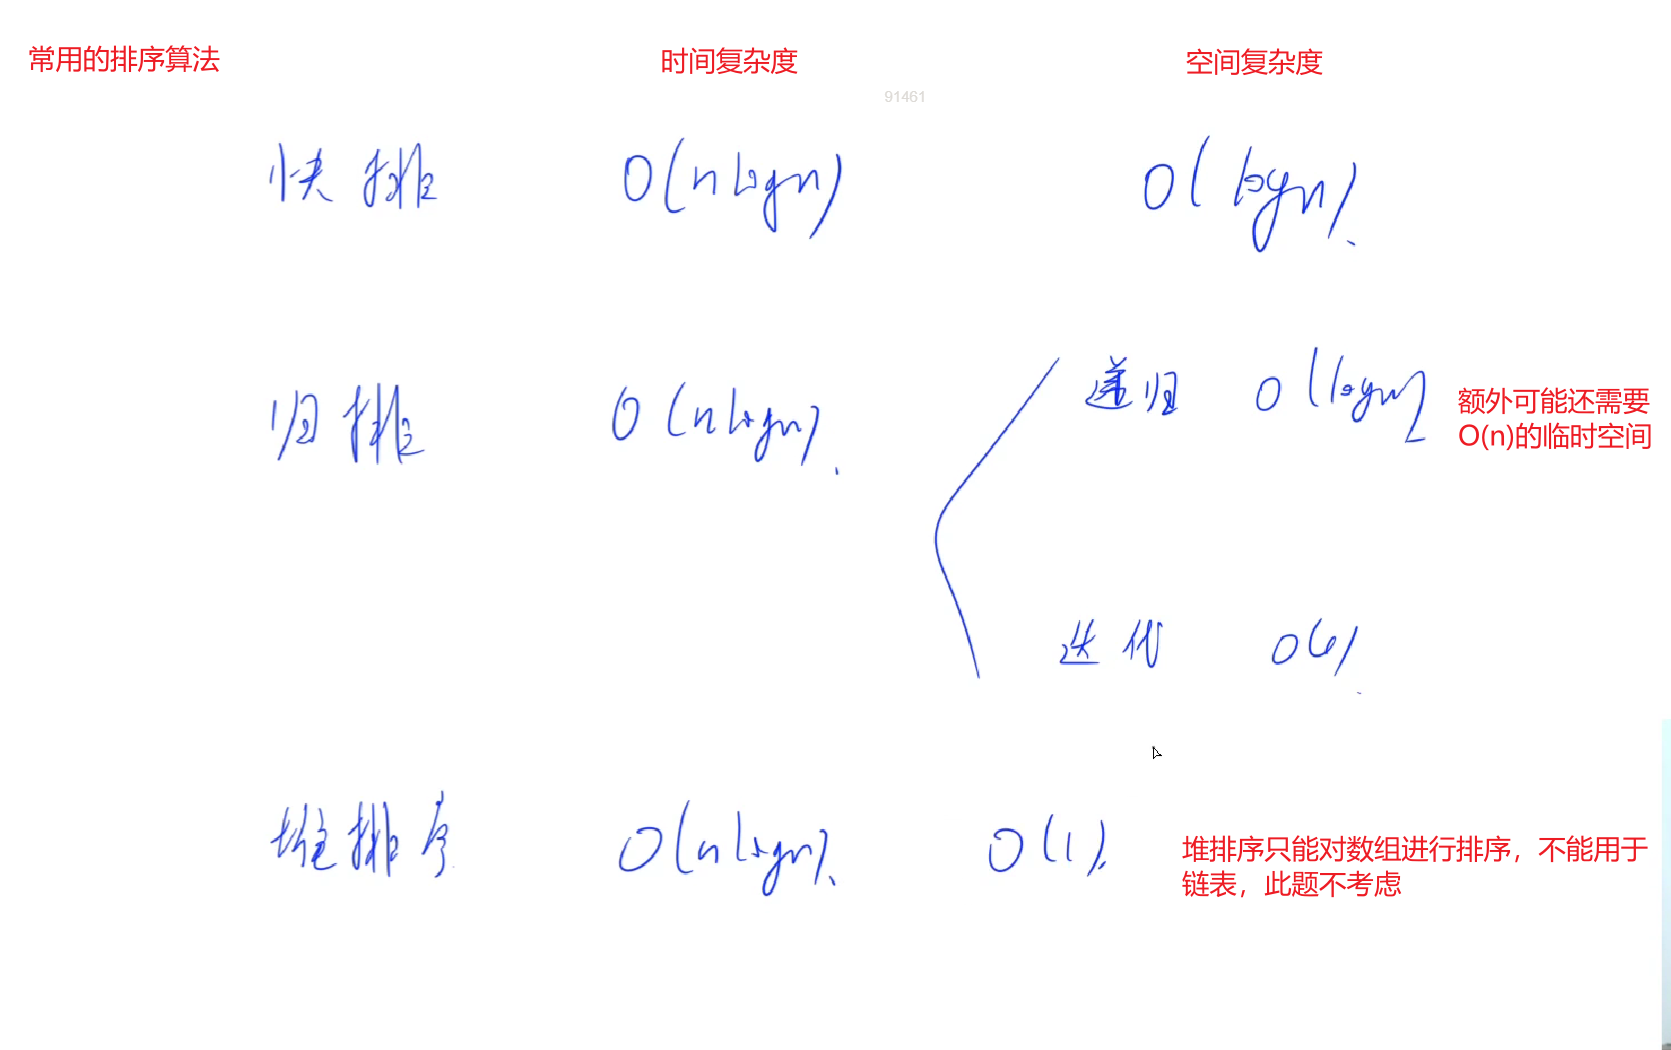 常用的排序算法 时间复杂度 空间复杂度
91461
快排 O(nlogn) O(logn).
归排 O(nlogn). 递归 O(logn) 额外可能还需要
O(n)的临时空间
迭代 O(1).
堆排序 O(nlogn). O(1). 堆排序只能对数组进行排序，不能用于
链表，此题不考虑